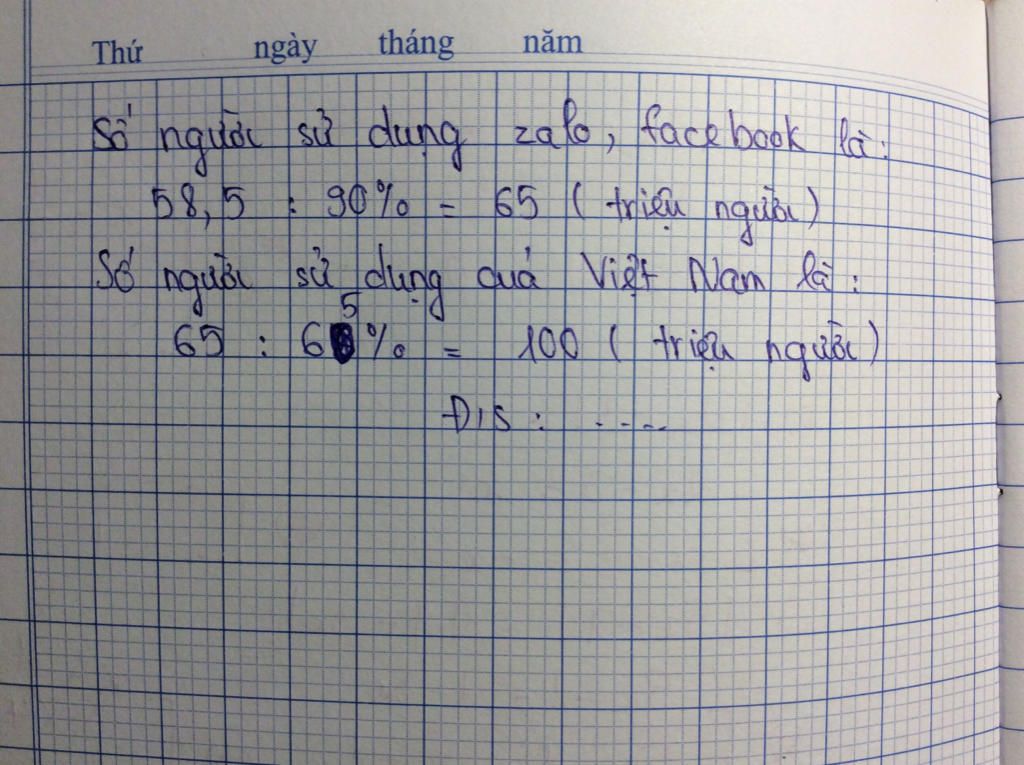 Thứ ngày tháng năm
Số người sử dụng zalo, facebook là:
58,5 : 90% = 65 ( triệu người)
Số người sử dụng quả Việt Nam là :
65 : 65% = 100 ( triệu người)
Đ/S : ....